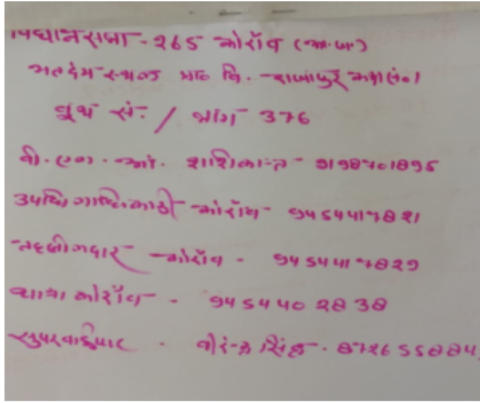 विधानसभा - 265 कोरॉव (अ.जा.)
मतदेय स्थल प्रा० वि. - राजापुर कक्ष सं० 1
बूथ सं. / भाग 376
बी. एल. ओ. शशिकान्त - 9198701895
उपजिलाधिकारी - कोरॉव - 9454417821
तहसीलदार - कोरॉव - 9454417829
थाना कोरॉव - 9454402838
सुपरवाईजर - वीरेन्द्र सिंह - 872655884